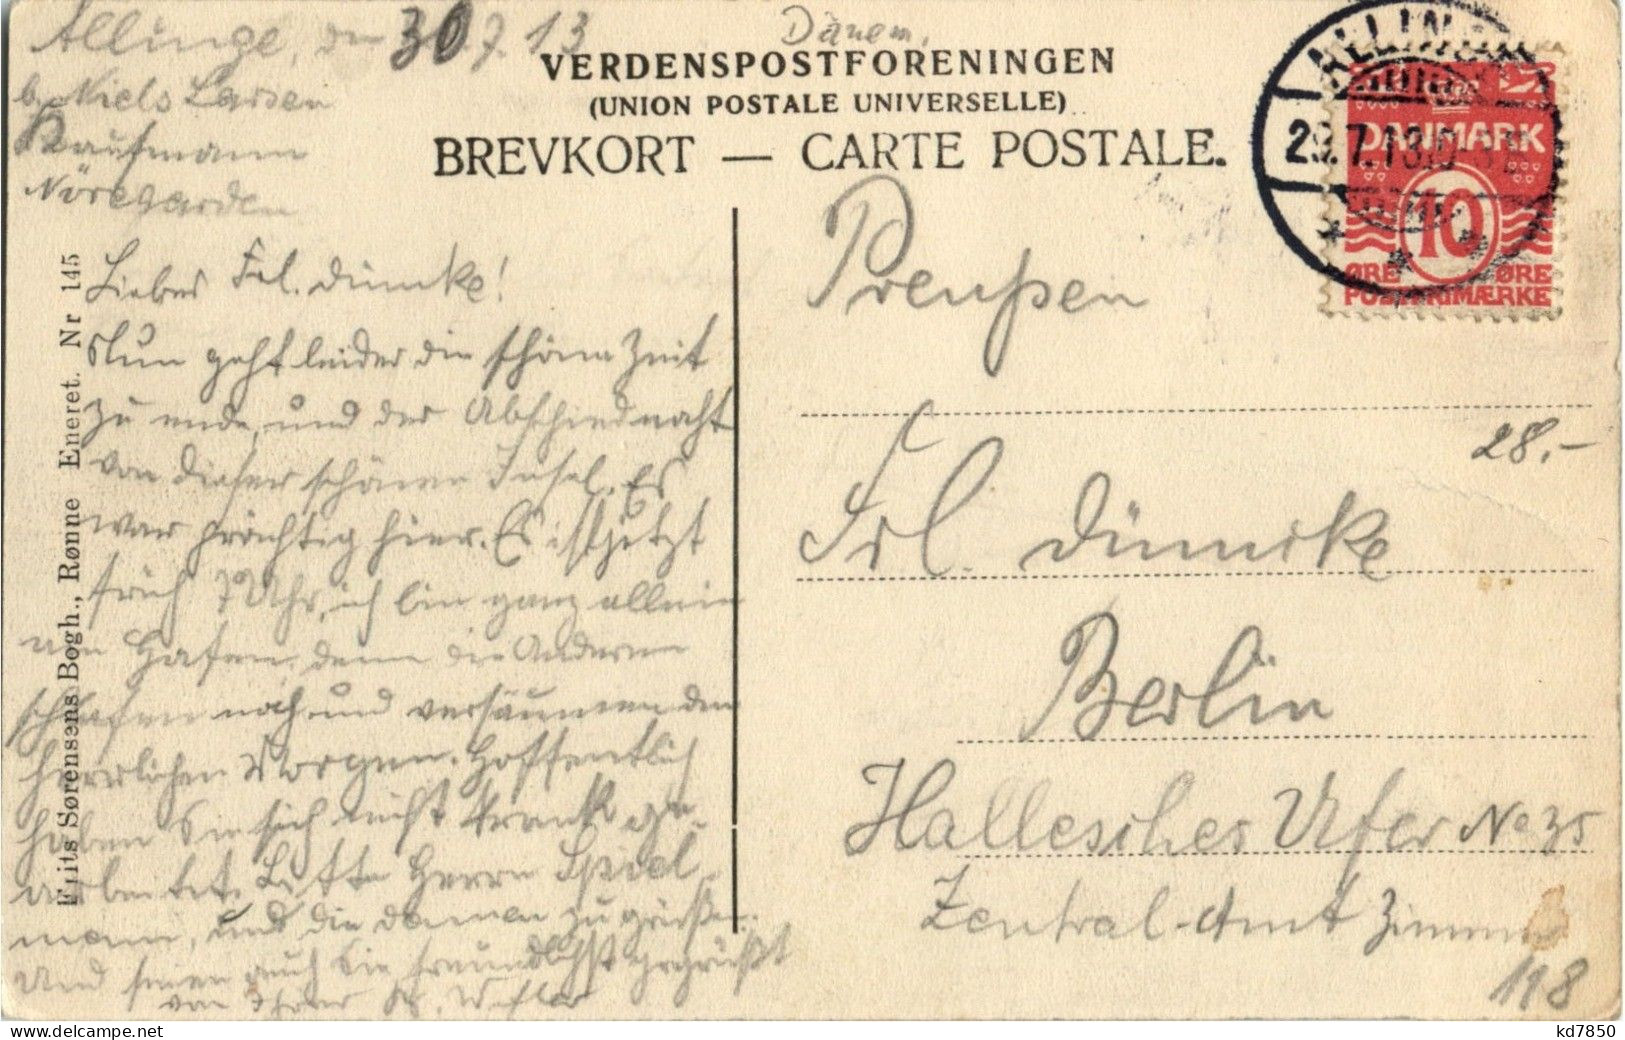 Allinge, den 30.7.13
Dänem.
b. Niels Larsen
Kaufmann
Nöregarden
VERDENSPOSTFORENINGEN
(UNION POSTALE UNIVERSELLE)
BREVKORT — CARTE POSTALE.
ALLINGE
29.7.13
DANMARK
10
ØRE ØRE
POSTFRIMÆRKE
Liebes Frl. Dümcke!
Nun geht leider die schöne Zeit
zu ende, und der Abschied naht
von dieser schönen Insel. Es
war prächtig hier. Es ist jetzt
früh 7 Uhr, ich bin ganz allein
am Hafen, denn die Anderen
schlafen noch und versäumen den
herrlichen Morgen. Hoffentlich
haben Sie sich nicht krank ge-
arbeitet. Bitte Herrn Spiel-
mann, und die Damen zu grüßen.
Und seien auch Sie freundlichst gegrüßt
von Ihrer
Frits Sørensens Bogh., Rønne Eneret. Nr 145
Preußen
28.-
Frl. Dümcke
Berlin
Hallesches Ufer No 35
Zentral-Amt Zimmer
118
kd7850